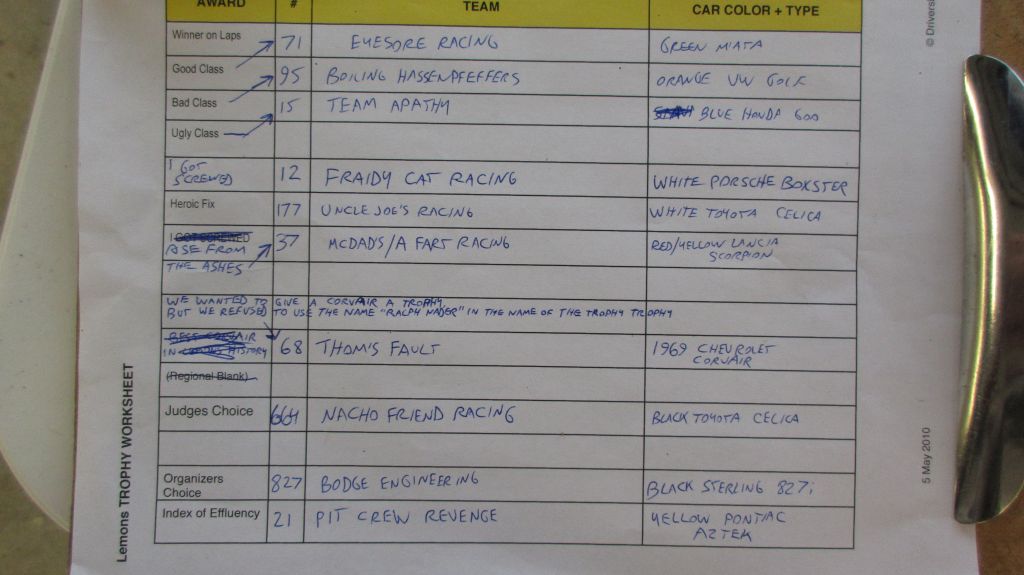 AWARD # TEAM CAR COLOR + TYPE
Winner on Laps 71 EYESORE RACING GREEN MIATA
Good Class 95 BOILING HASSENPFEFFERS ORANGE VW GOLF
Bad Class 15 TEAM APATHY BLUE HONDA 600
Ugly Class
I GOT
SCREWED 12 FRAIDY CAT RACING WHITE PORSCHE BOXSTER
Heroic Fix 177 UNCLE JOE'S RACING WHITE TOYOTA CELICA
I GOT SCREWED
RISE FROM 37 MCDAD'S/A FART RACING RED/YELLOW LANCIA
THE ASHES SCORPION
WE WANTED TO GIVE A CORVAIR A TROPHY,
BUT WE REFUSED TO USE THE NAME "RALPH NADER" IN THE NAME OF THE TROPHY TROPHY
BEST CORVAIR
IN HISTORY 68 THOM'S FAULT 1969 CHEVROLET
CORVAIR
(Regional Blank)
Judges Choice 664 NACHO FRIEND RACING BLACK TOYOTA CELICA
Organizers
Choice 827 BODGE ENGINEERING BLACK STERLING 827i
Index of Effluency 21 PIT CREW REVENGE YELLOW PONTIAC
AZTEK
Lemons TROPHY WORKSHEET
5 May 2010